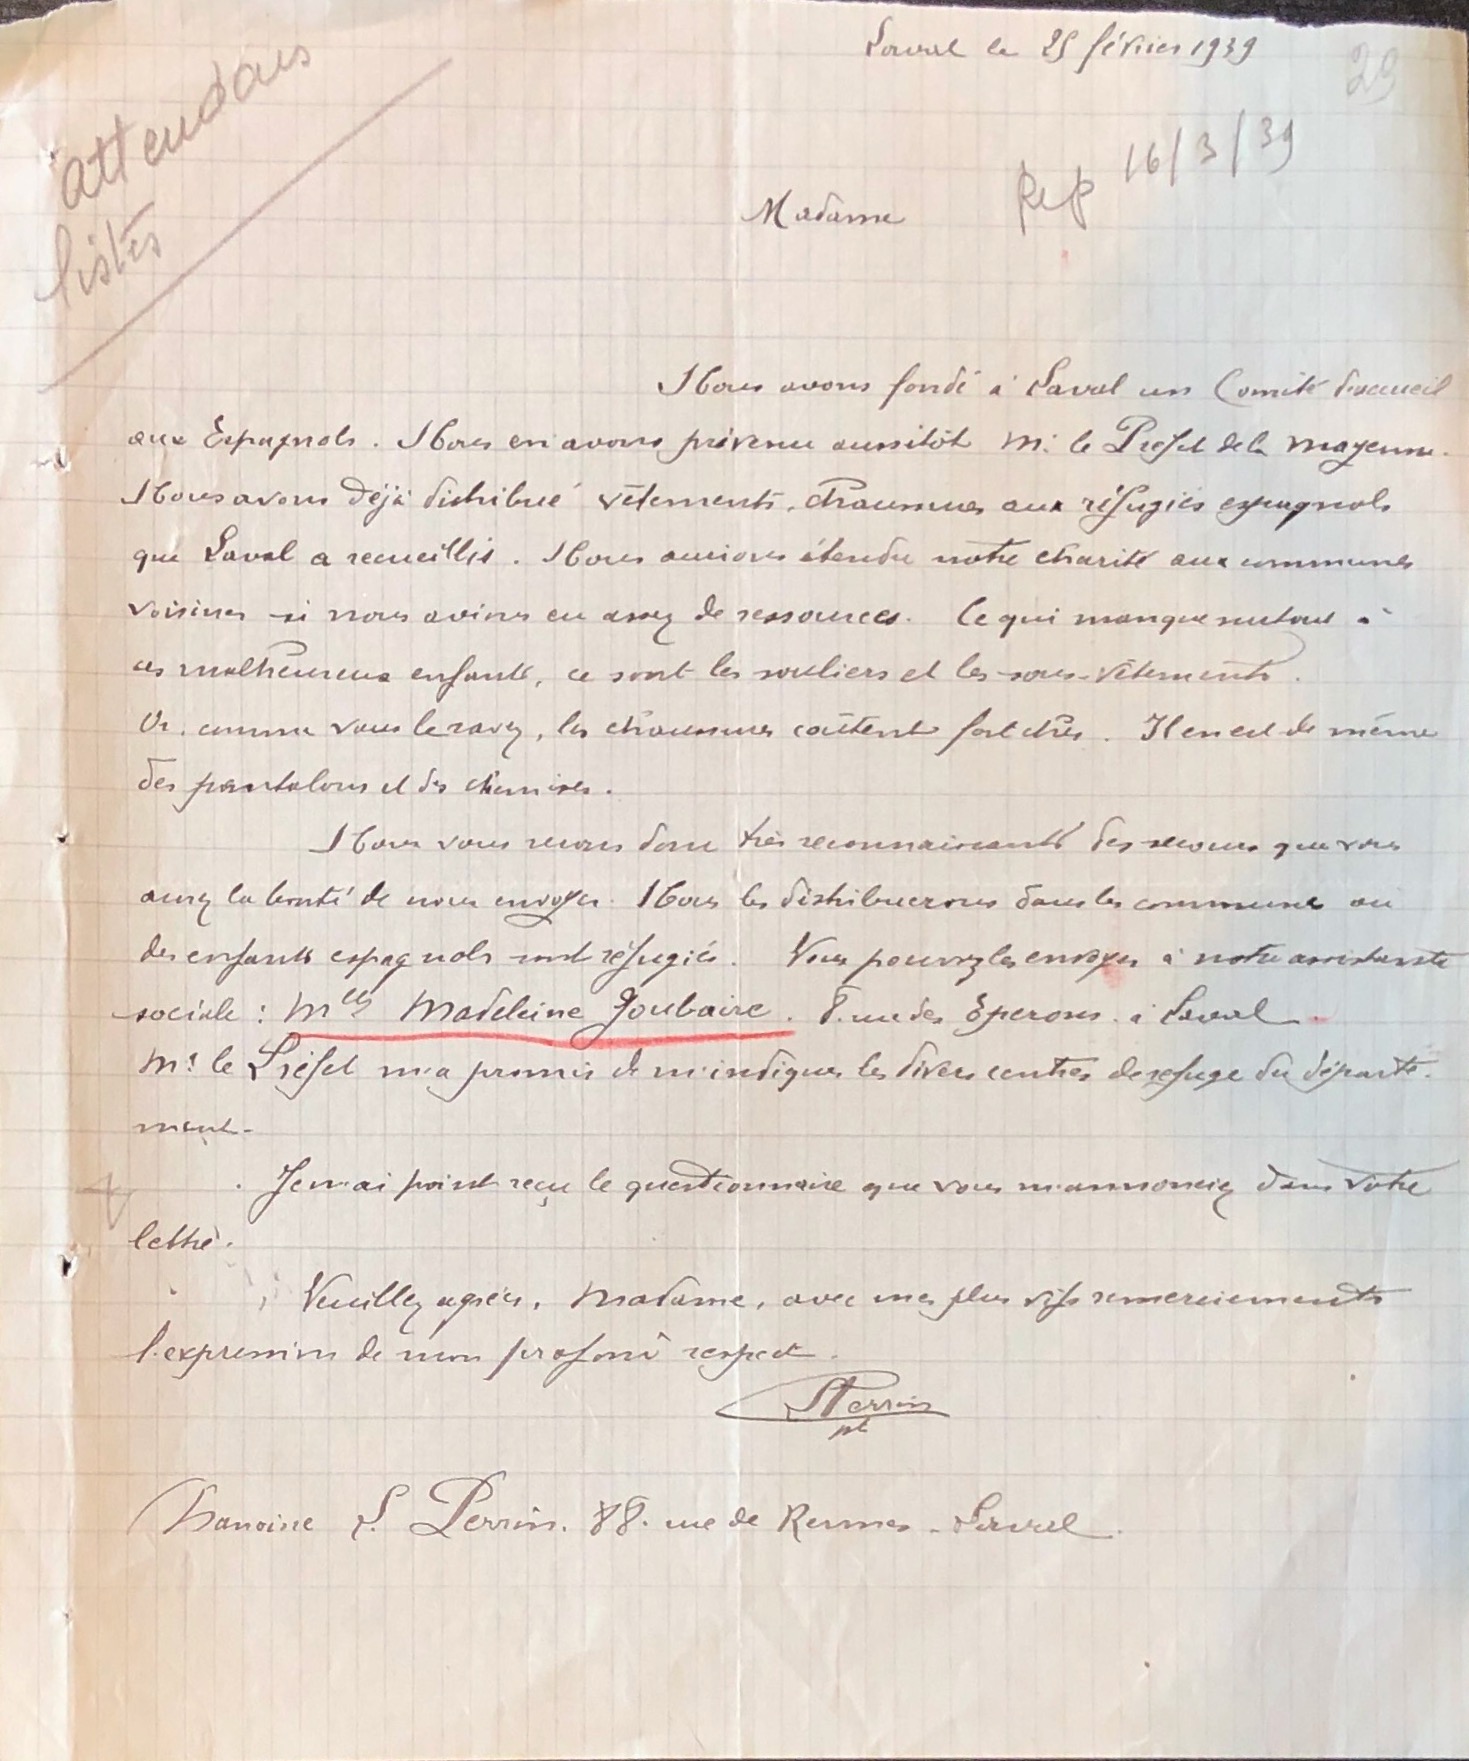 Laval le 25 février 1939
29
attendons
listes
Rep 16/3/39
Madame
Nous avons fondé à Laval un Comité d'accueil
aux Espagnols. Nous en avons prévenu aussitôt M. le Préfet de la Mayenne.
Nous avons déjà distribué vêtements, chaussures aux réfugiés espagnols
que Laval a recueillis. Nous aurions étendu notre charité aux communes
voisines si nous avions eu assez de ressources. Ce qui manque surtout à
ces malheureux enfants, ce sont les souliers et les sous-vêtements.
Or, comme vous le savez, les chaussures coûtent fort cher. Il en est de même
des pantalons et des chemises.
Nous vous serons donc très reconnaissants des secours que vous
aurez la bonté de nous envoyer. Nous les distribuerons dans les communes où
des enfants espagnols sont réfugiés. Vous pouvez les envoyer à notre assistante
sociale : Mlle Madeleine Joubaire. 8. rue des Eperons. à Laval.
Mr le Préfet m'a promis de m'indiquer les divers centres de refuge du départe-
ment.
Je n'ai point reçu le questionnaire que vous m'annonciez dans votre
lettre.
Veuillez agréer, Madame, avec mes plus vifs remerciements
l'expression de mon profond respect.
Perrin
pt
Chanoine L. Perrin. 88. rue de Rennes - Laval.